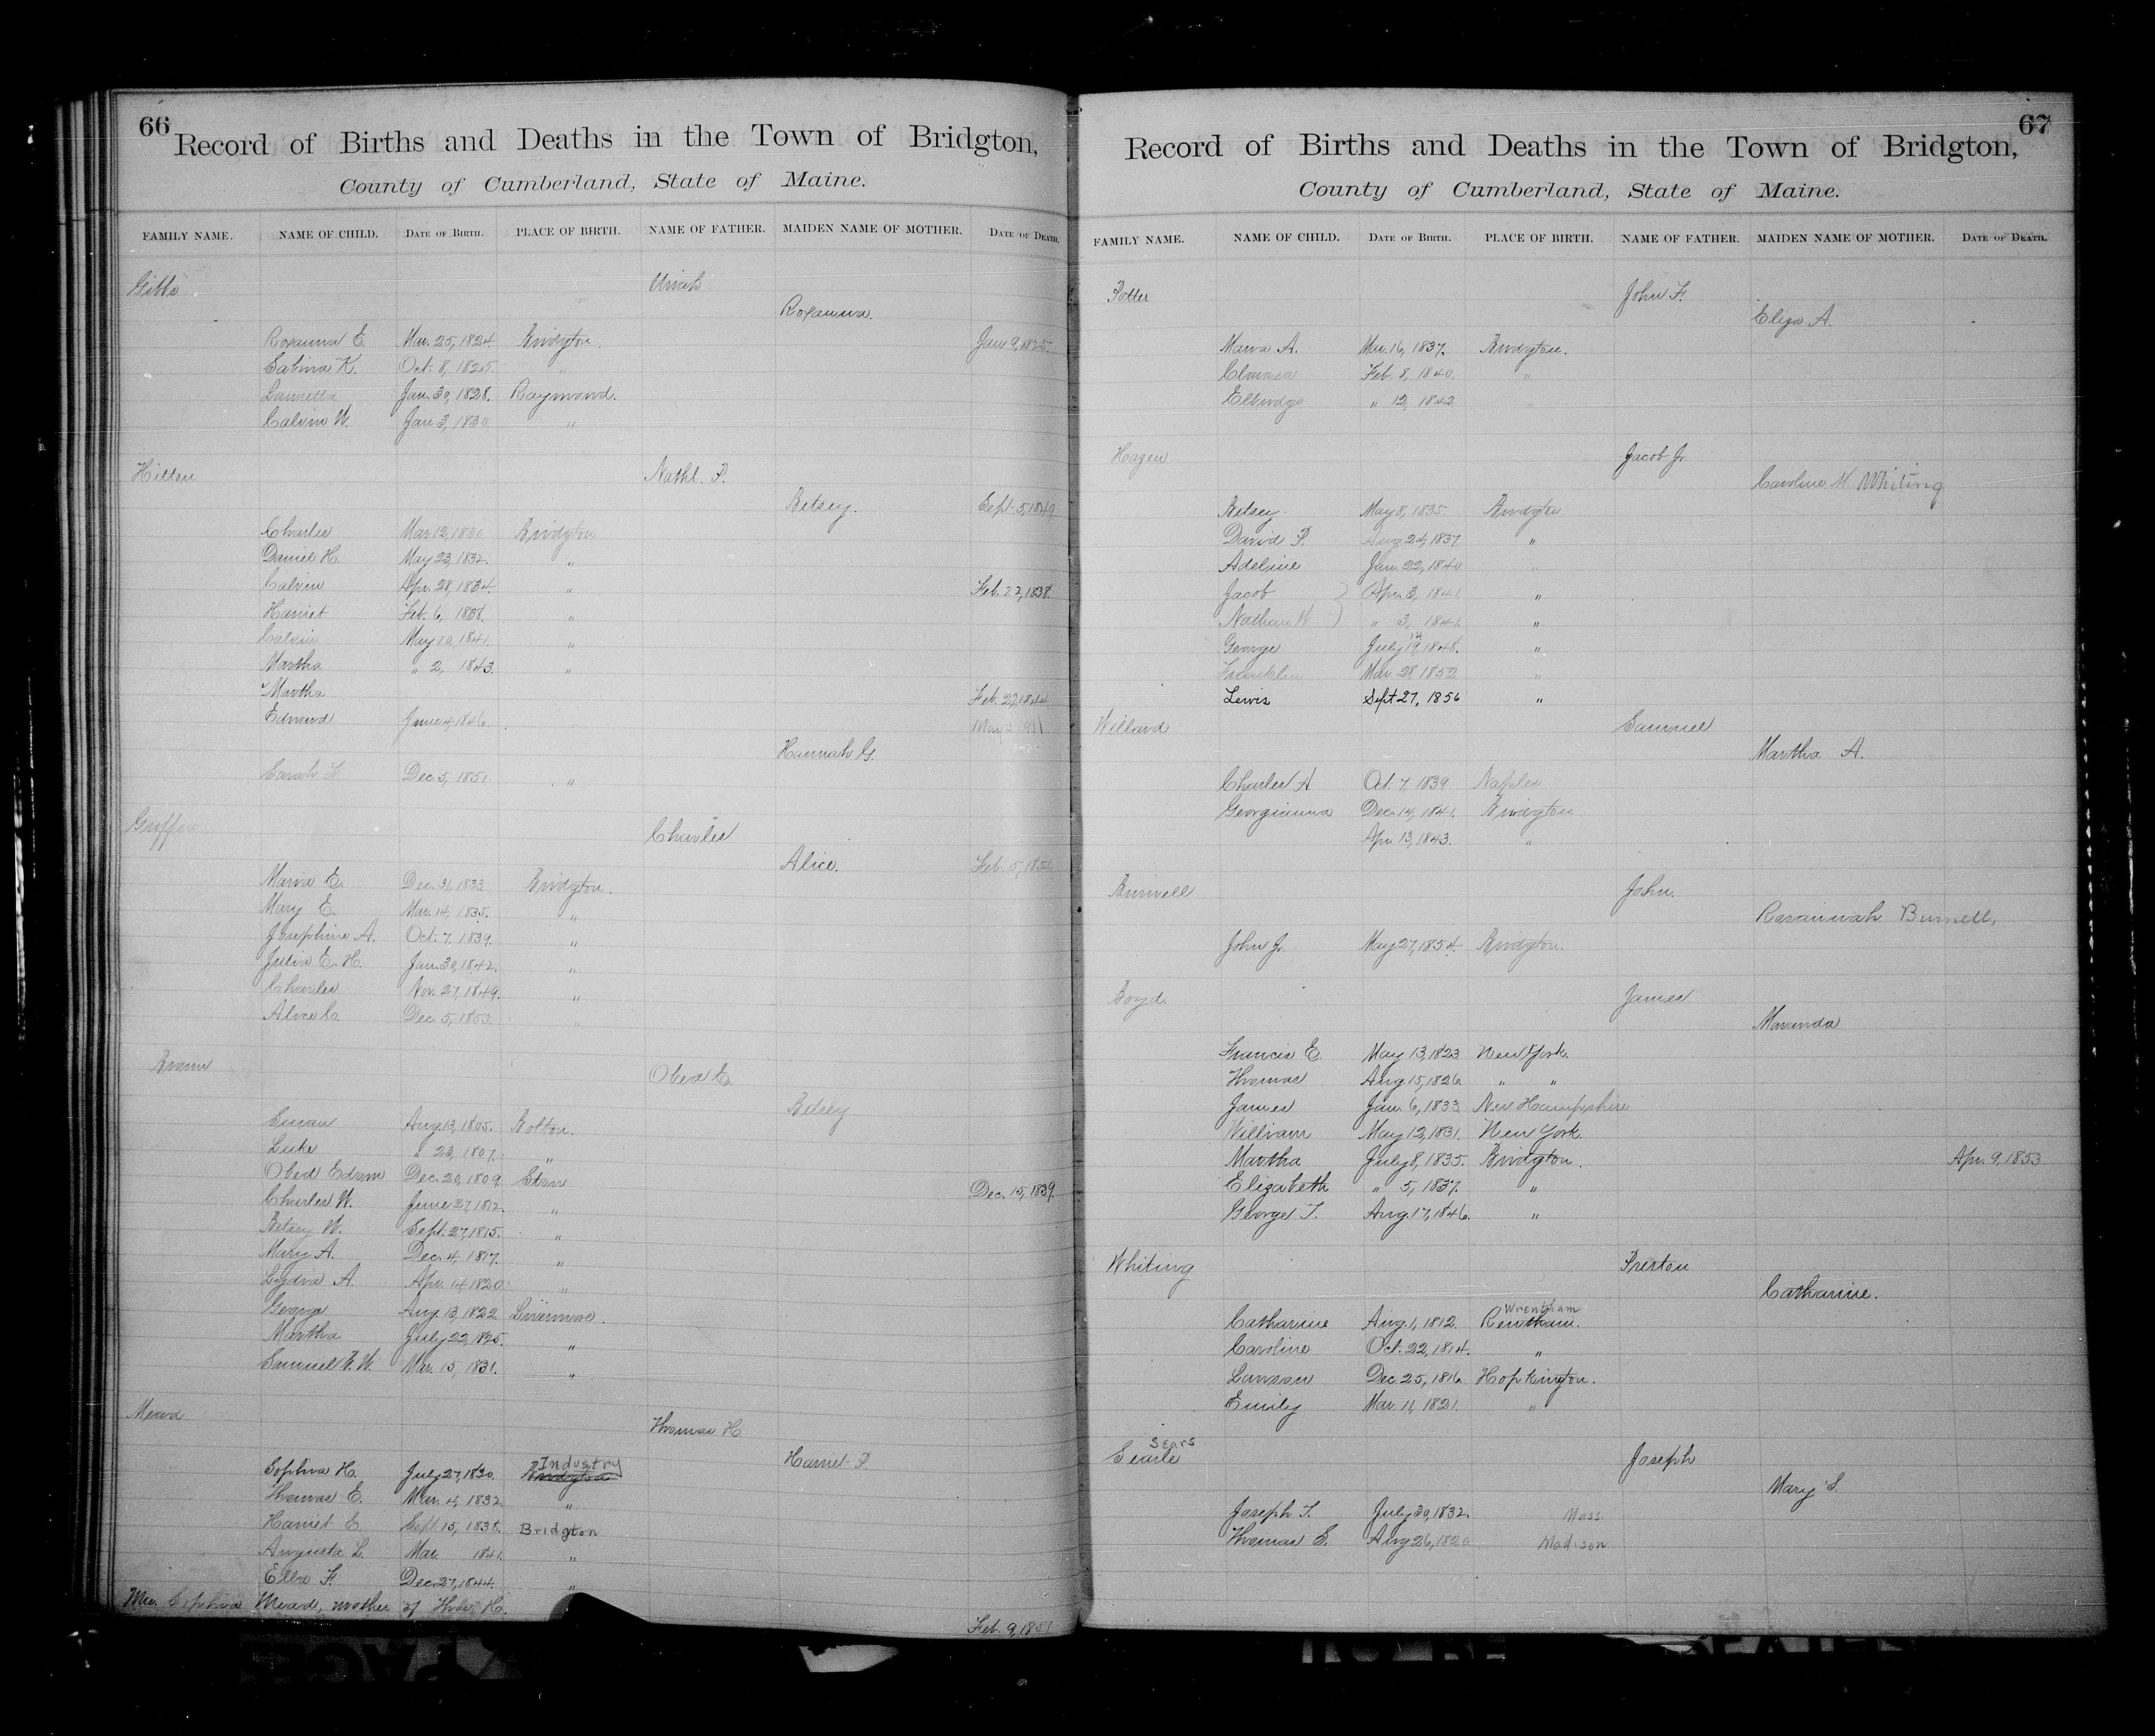 66
Record of Births and Deaths in the Town of Bridgton,
County of Cumberland, State of Maine.
FAMILY NAME. NAME OF CHILD. DATE OF BIRTH. PLACE OF BIRTH. NAME OF FATHER. MAIDEN NAME OF MOTHER. DATE OF DEATH.
Gibbs Uriah
Roxanna.
Roxanna E. Mar. 25, 1824 Bridgton. Jan 9, 1825
Sabina K. Oct. 8, 1825. "
Lauretta Jan. 30, 1828. Raymond.
Calvin W. Jan 3, 1830. "
Hilton Nathl. P.
Betsey. Sept 5, 1849
Charles Mar. 12, 1830 Bridgton
Daniel H. May 23, 1832. "
Calvin Apr. 28, 1834. " Feb. 22, 1838.
Harriet Feb. 6, 1838. "
Calvin May 10, 1841. "
Martha " 2, 1843. "
Martha Feb. 27, 1844
Edward June 4, 1846.
Hannah G.
Sarah F. Dec. 5, 1851 "
Griffin Charles
Alice. Feb.
Maria E. Dec. 31, 1833 Bridgton.
Mary E. Mar. 14, 1835. "
Josephine A. Oct. 7, 1839. "
Julia E. H. Jan. 30, 1842. "
Charles Nov. 27, 1849. "
Alice C. Dec. 5, 1853. "
Brown Obed E.
Betsey
Susan Aug. 13, 1805. Bolton.
Luke " 23, 1807. "
Obed Edson Dec. 20, 1809. Stow
Charles W. June 27, 1812. " Dec. 15, 1839.
Betsey W. Sept. 27, 1815. "
Mary A. Dec. 4, 1817. "
Lydia A. Apr. 14, 1820. "
George Aug. 13, 1822. Livermore.
Martha July 22, 1825. "
Samuel F. W. Mar. 15, 1831. "
Mead Thomas H.
Harriet P.
Industry
Sophia H. July 27, 1830. Bridgton
Thomas E. Mar. 4, 1832. "
Harriet E. Sept 15, 1838. Bridgton
Augusta L. Mar. 1841. "
Ella F. Dec. 27, 1844. "
Mrs. Sophia Mead, mother of Thos. H.
Feb. 9, 1851
67
Record of Births and Deaths in the Town of Bridgton,
County of Cumberland, State of Maine.
FAMILY NAME. NAME OF CHILD. DATE OF BIRTH. PLACE OF BIRTH. NAME OF FATHER. MAIDEN NAME OF MOTHER. DATE OF DEATH.
Potter John F.
Eliza A.
Maria A. Mar. 16, 1837. Bridgton.
Clarissa Feb. 8, 1840. "
Elbridge " 12, 1842 "
Hazen Jacob Jr.
Caroline M Whiting
Betsey May 8, 1835. Bridgton
David P. Aug 24, 1837. "
Adeline Jan. 22, 1840. "
Jacob } Apr. 3, 1841. "
Nathan W } " 3, 1841. "
George July 19, 1848. "
Franklin Mar. 28, 1852 "
Lewis Sept 27, 1856 "
Willard Samuel
Martha A.
Charles A Oct. 7, 1839 Naples
Georgianna Dec. 14, 1841. Bridgton
Apr. 13, 1843. "
Burnell John.
Rosannah Burnell,
John Jr. May 27, 1854. Bridgton.
Boyd. James
Marinda
Francis E. May 13, 1823 New York.
Thomas Aug. 15, 1826. " "
James Jan. 6, 1833. New Hampshire
William May 12, 1831. New York.
Martha July 8, 1835. Bridgton. Apr. 9, 1853
Elizabeth " 5, 1837. "
George T. Aug. 17, 1846. "
Whiting Preston
Catharine.
Wrentham
Catharine Aug. 1, 1812. Rentham.
Caroline Oct. 22, 1814. "
Lawson Dec. 25, 1816. Hopkington.
Emily Mar. 11, 1821. "
Sears
Searle Joseph
Mary S.
Joseph T. July 30, 1832. Mass
Thomas E. Aug 26, 1820 Madison